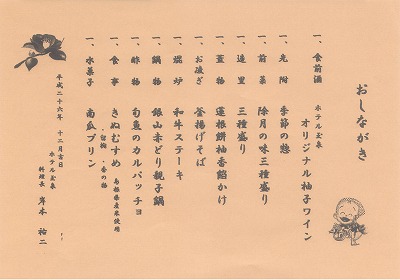 おしながき
一、食前酒 ホテル玉泉
オリジナル柚子ワイン
一、先附 季節の惣
一、前菜 除月の味三種盛り
一、造里 三種盛り
一、蓋物 蓮根餅柚香餡かけ
一、お凌ぎ 釜揚げそば
一、焜炉 和牛ステーキ
一、鍋物 銀山赤どり親子鍋
一、酢物 旬魚のカルパッチョ
一、食事 きぬむすめ 島根県産米使用
・留椀 ・香の物
一、水菓子 南瓜プリン
平成二十六年 十二月吉日
ホテル玉泉
料理長 岸本 祐二